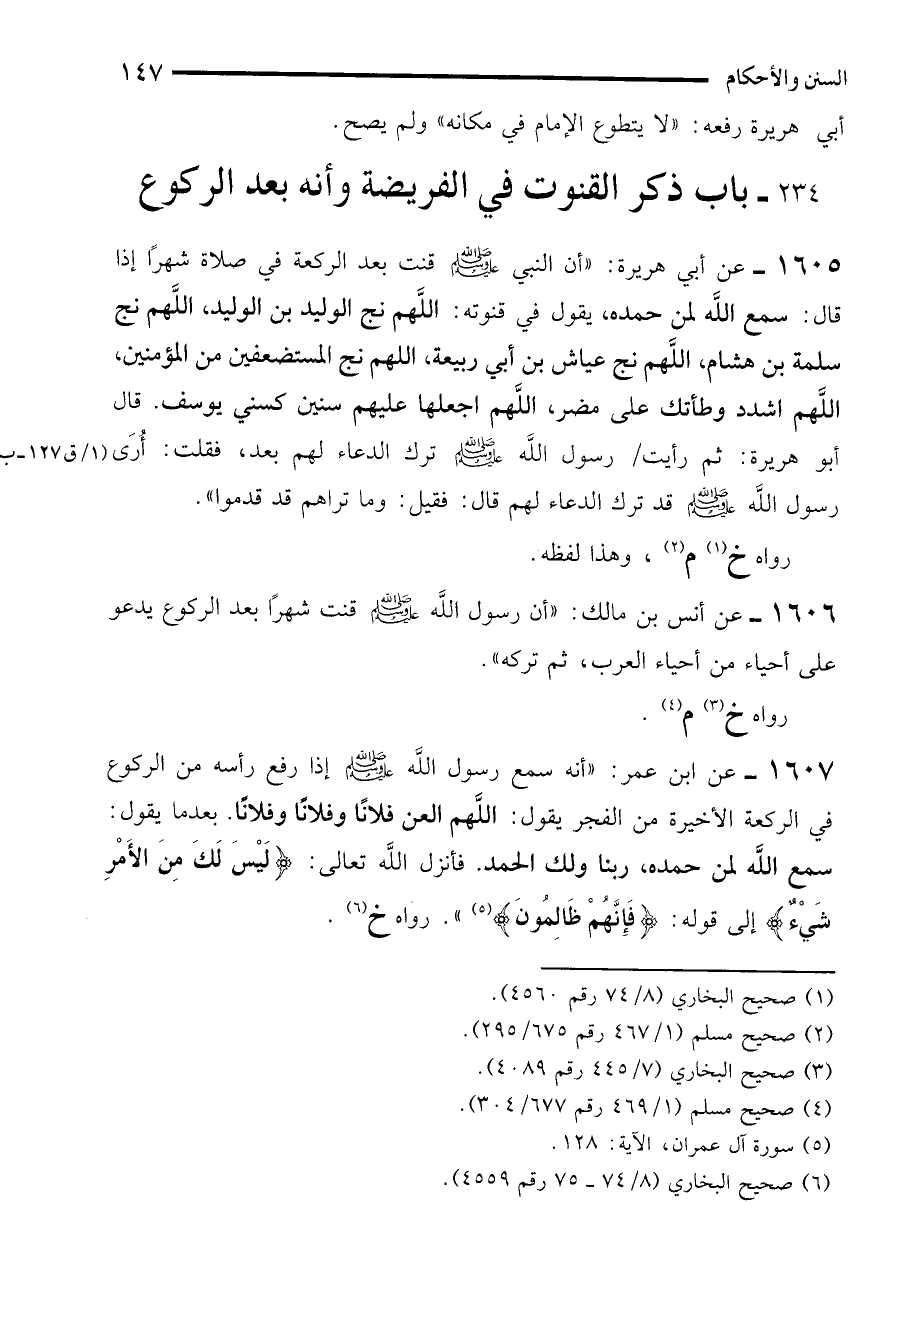 السنن والأحكام ١٤٧
أبي هريرة رفعه: «لا يتطوع الإمام في مكانه» ولم يصح.
٢٣٤ ـ باب ذكر القنوت في الفريضة وأنه بعد الركوع
١٦٠٥ ـ عن أبي هريرة: «أن النبي ﷺ قنت بعد الركعة في صلاة شهرًا إذا
قال: سمع اللَّه لمن حمده، يقول في قنوته: اللَّهم نج الوليد بن الوليد، اللَّهم نج
سلمة بن هشام، اللَّهم نج عياش بن أبي ربيعة، اللهم نج المستضعفين من المؤمنين،
اللَّهم اشدد وطأتك على مضر، اللَّهم اجعلها عليهم سنين كسني يوسف. قال
أبو هريرة: ثم رأيت/ رسول اللَّه ﷺ ترك الدعاء لهم بعد، فقلت: أُرَى (١/ق١٢٧-ب
رسول اللَّه ﷺ قد ترك الدعاء لهم قال: فقيل: وما تراهم قد قدموا».
رواه خ(١) م(٢) ، وهذا لفظه.
١٦٠٦ ـ عن أنس بن مالك: «أن رسول اللَّه ﷺ قنت شهرًا بعد الركوع يدعو
على أحياء من أحياء العرب، ثم تركه».
رواه خ(٣) م(٤) .
١٦٠٧ ـ عن ابن عمر: «أنه سمع رسول اللَّه ﷺ إذا رفع رأسه من الركوع
في الركعة الأخيرة من الفجر يقول: اللَّهم العن فلانًا وفلانًا وفلانًا. بعدما يقول:
سمع اللَّه لمن حمده، ربنا ولك الحمد. فأنزل اللَّه تعالى: ﴿لَيْسَ لَكَ مِنَ الأَمْرِ
شَيْءٌ﴾ إلى قوله: ﴿فَإِنَّهُمْ ظَالِمُونَ﴾(٥) ». رواه خ(٦) .
(١) صحيح البخاري (٨/ ٧٤ رقم ٤٥٦٠).
(٢) صحيح مسلم (١/ ٤٦٧ رقم ٦٧٥/ ٢٩٥).
(٣) صحيح البخاري (٧/ ٤٤٥ رقم ٤٠٨٩).
(٤) صحيح مسلم (١/ ٤٦٩ رقم ٦٧٧/ ٣٠٤).
(٥) سورة آل عمران، الآية: ١٢٨.
(٦) صحيح البخاري (٨/ ٧٤ ـ ٧٥ رقم ٤٥٥٩).